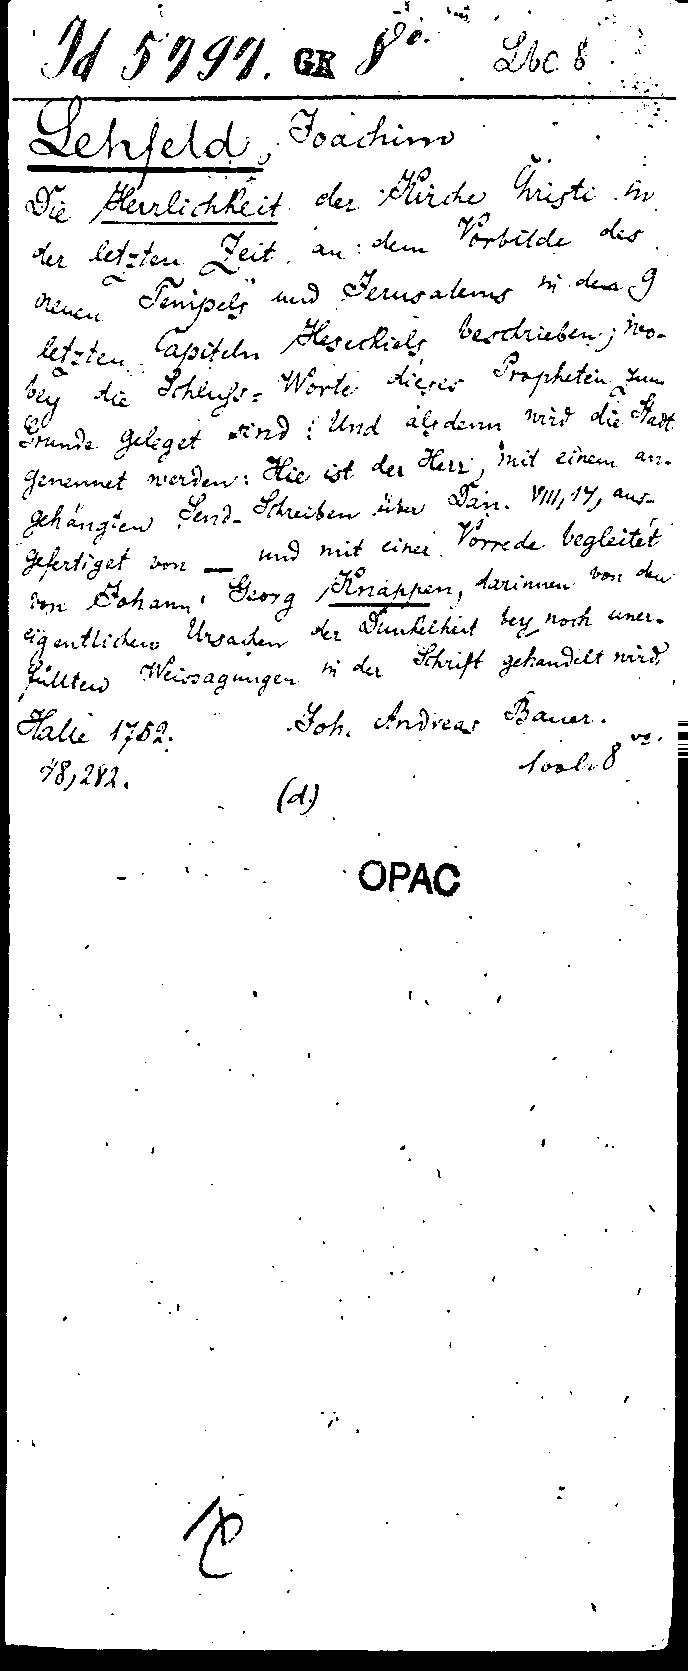 Id 5797. GK 8o. Lbc 8
Lehfeld, Joachim
Die Herrlichkeit der Kirche Christi in
der letzten Zeit an dem Vorbilde des
neuen Tempels und Jerusalems in den 9
letzten Capiteln Heseckiels beschrieben; wo-
bey die Schluss-Worte dieses Propheten zum
Grunde geleget sind: Und alsdenn wird die Stadt
genennet werden: Hie ist der Herr, mit einem an-
gehängten Send-Schreiben über Dan. VIII, 17, aus-
gefertiget von — und mit einer Vorrede begleitet
von Johann Georg Knappen, darinnen von den
eigentlichen Ursachen der Dunkelheit bey noch uner-
füllten Weissagungen in der Schrift gehandelt wird.
Halle 1752. Joh. Andreas Bauer.
48, 282. 8vo.
(d.)
OPAC